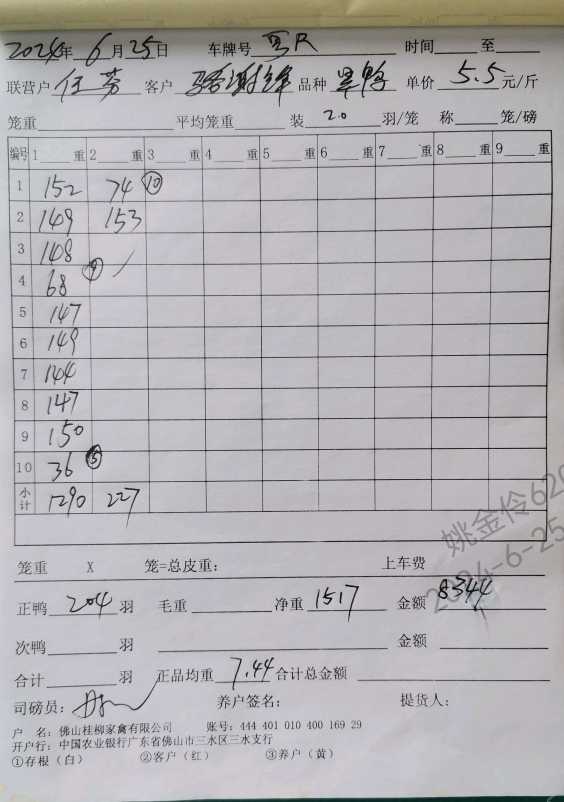 2024年 6月25日 车牌号 时间 至
联营户 任芳 客户 骆谢锋 品种 单价 5.5 元/斤
笼重 平均笼重 装 20 羽/笼 称 笼/磅
编号 1 重 2 重 3 重 4 重 5 重 6 重 7 重 8 重 9 重
1 152 74 ⑩
2 149 153
3 148
4 68 ⑨
5 147
6 149
7 144
8 147
9 150
10 36 ⑤
小计 1290 227
笼重 X 笼=总皮重: 上车费
正鸭 204 羽 毛重 净重 1517 金额 8344
次鸭 羽 金额
合计 羽 正品均重 7.44 合计总金额
司磅员: 养户签名: 提货人:
户 名: 佛山桂柳家禽有限公司 账号: 444 401 010 400 169 29
开户行: 中国农业银行广东省佛山市三水区三水支行
①存根(白) ②客户(红) ③养户(黄)
姚金伶629
2024-6-25